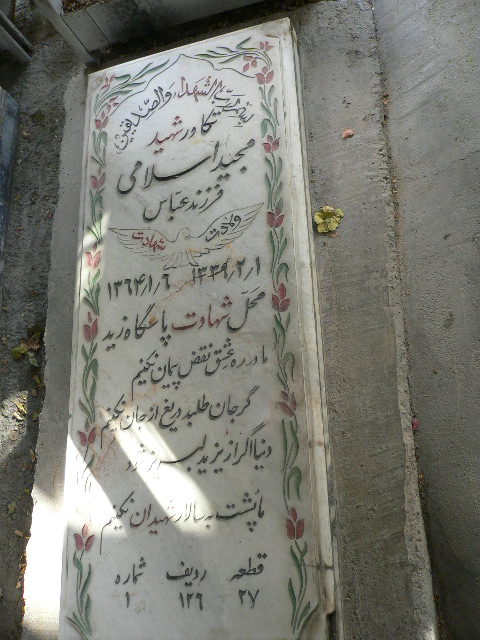 بسم رب الشهداء والصّدیقین
تکاور شهید
مجید اسلامی
فرزند عبّاس
ولادت شهادت
۱۳۳۹/۲/۱ ۱۳۶۴/۱/۶
محلّ شهادت پاسگاه زید
ما در ره عشق نقض پیمان نکنیم
گر جان طلبد دریغ از جان نکنیم
دنیا اگر از یزید لبریز شود
ما پشت به سالار شهیدان نکنیم
قطعه ردیف شماره
۲۷ ۱۲۶ ۱